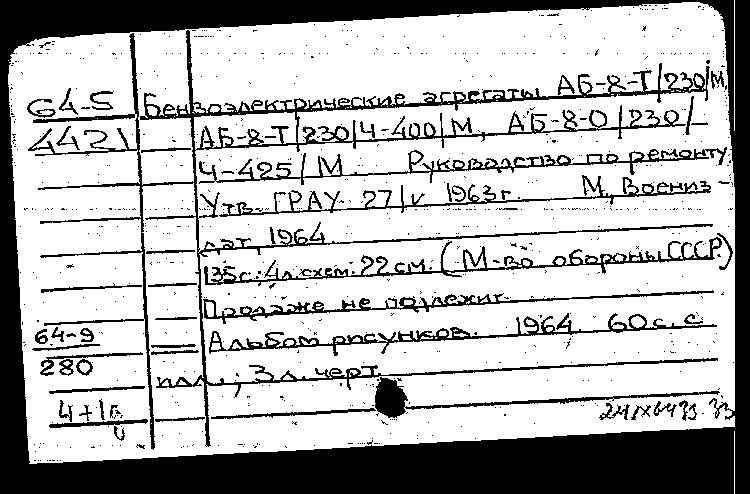 64-5 Бензоэлектрические агрегаты АБ-8-Т/230/М,
4421 АБ-8-Т/230/Ч-400/М, АБ-8-О/230/
Ч-425/М. Руководство по ремонту
Утв. ГРАУ 27/V 1963г. М., Воениз-
дат, 1964
135с.; 4л.схем. 22см. (М-во обороны СССР.)
Продаже не подлежит.
64-9 Альбом рисунков. 1964. 60с. с
280 илл.; 3л.черт.
4+1